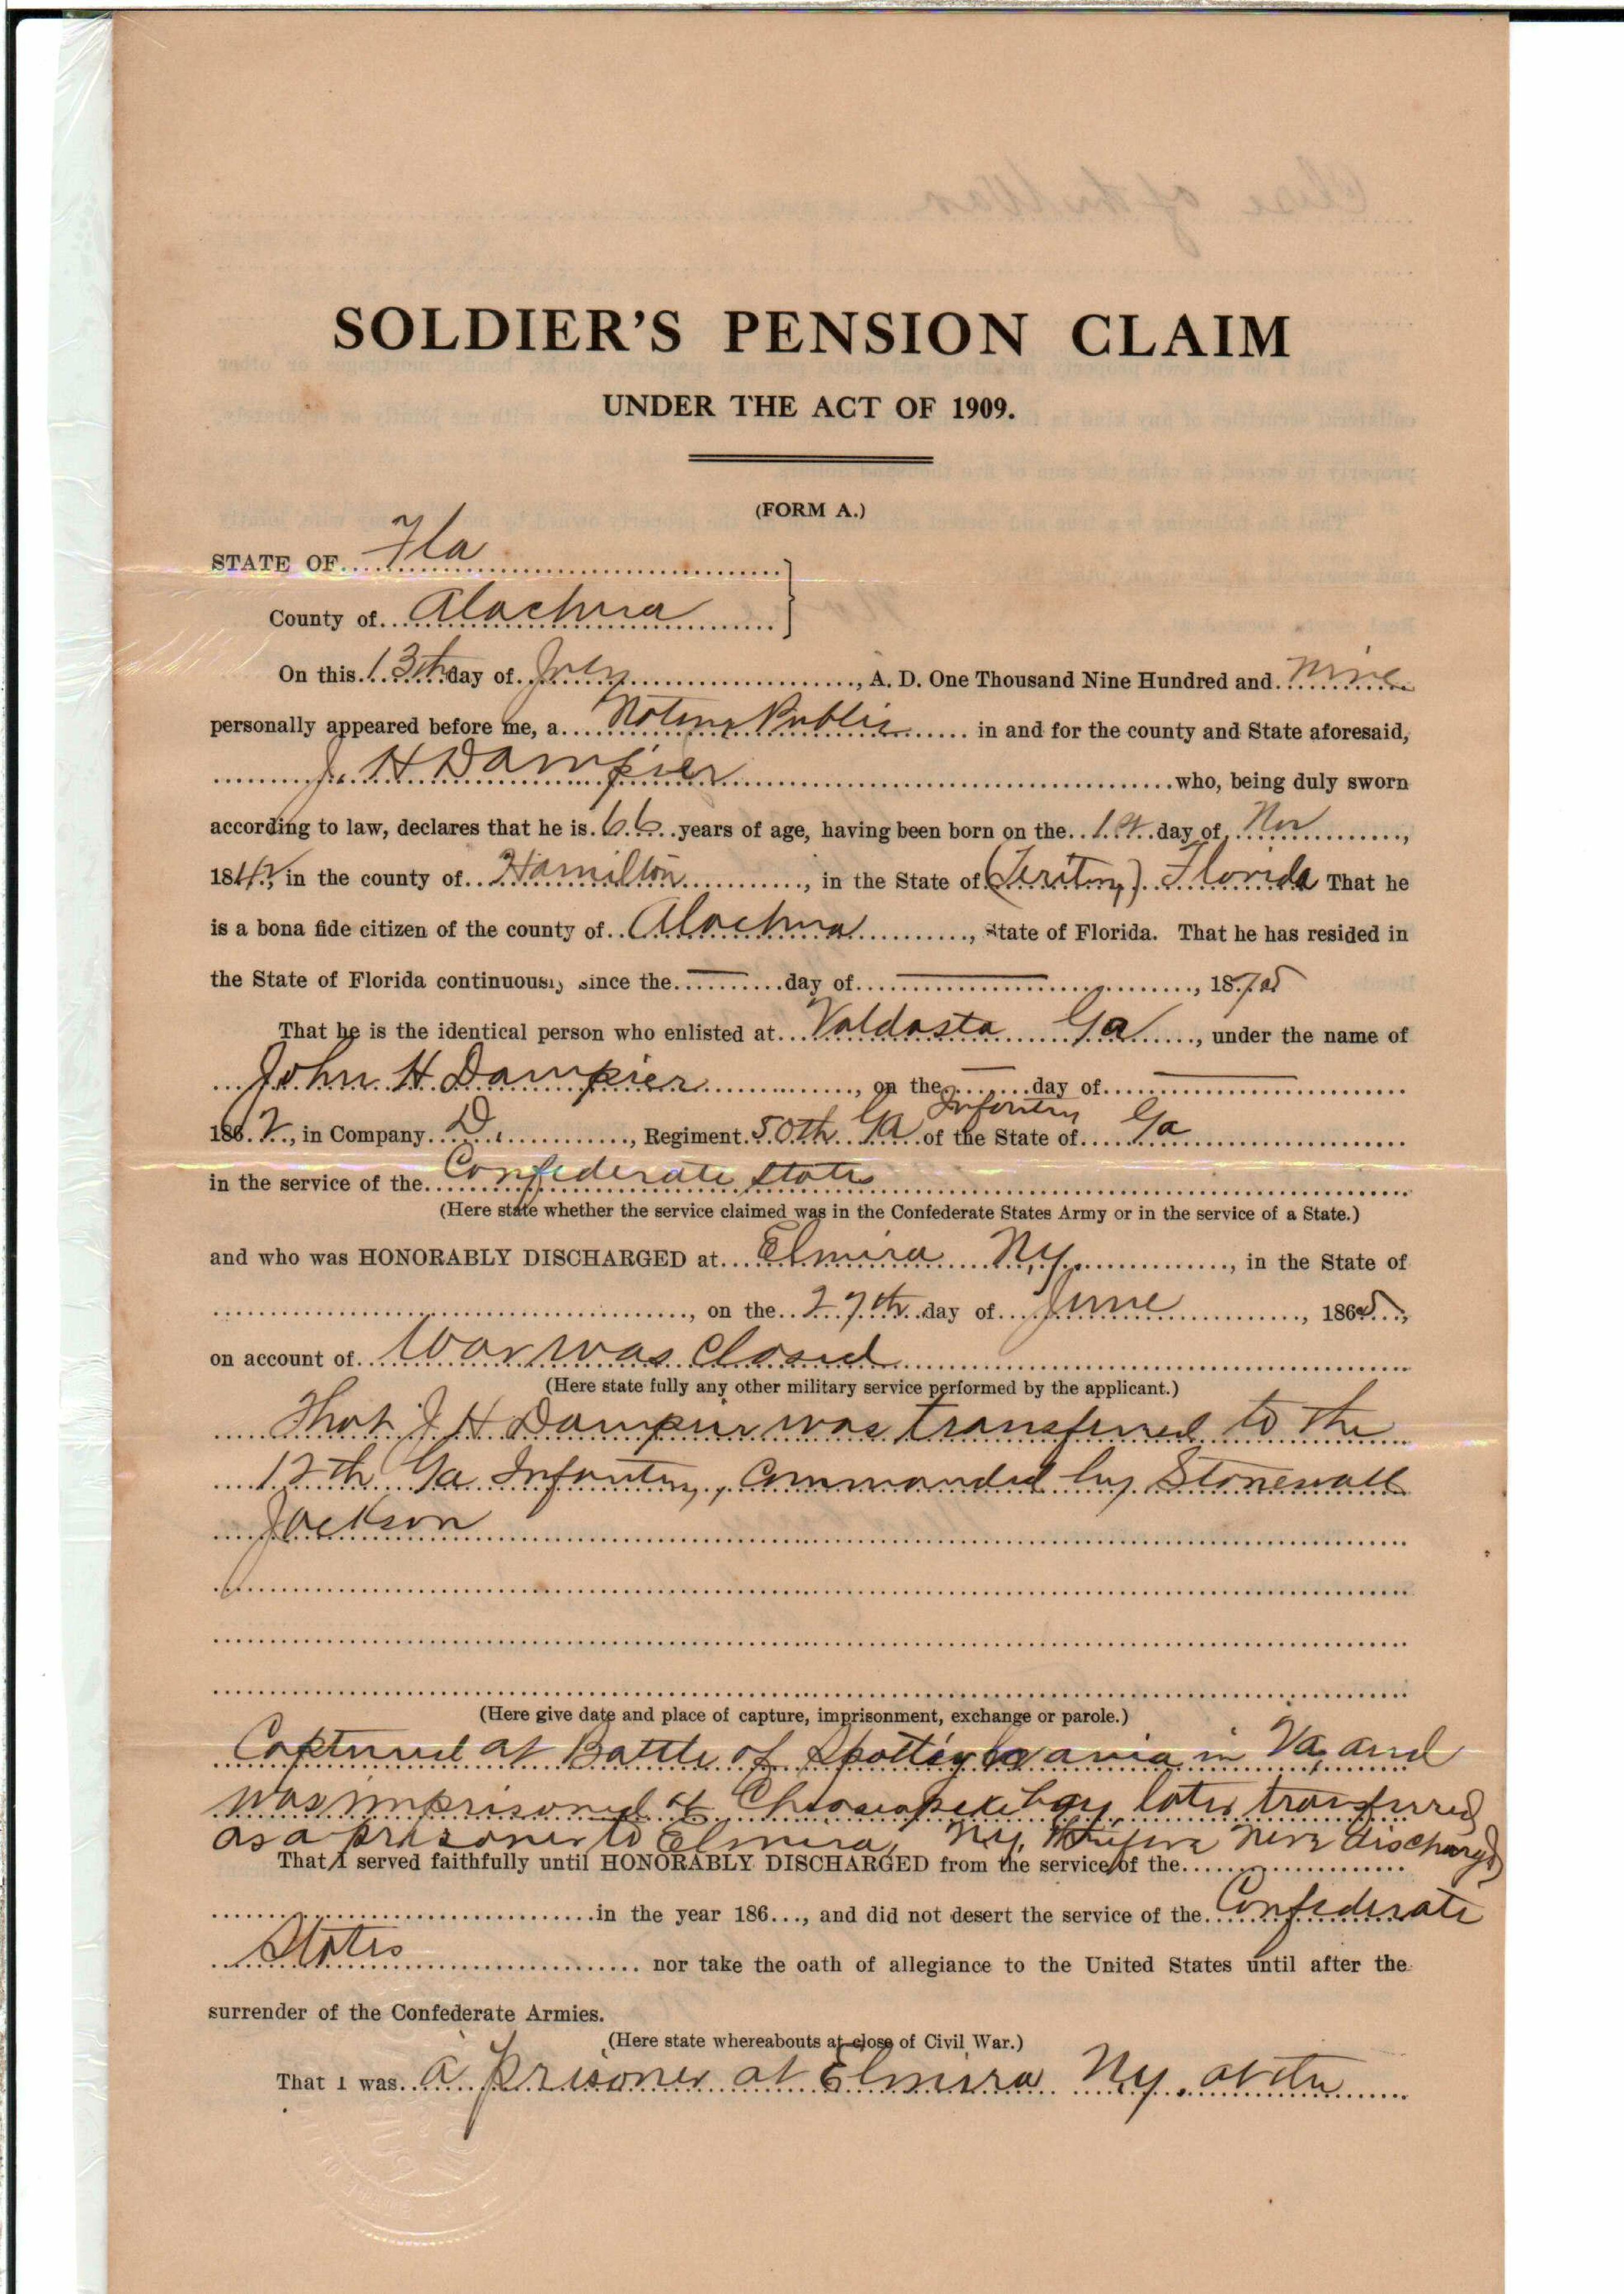 SOLDIER'S PENSION CLAIM
UNDER THE ACT OF 1909.
(FORM A.)
STATE OF Fla
County of Alachua
On this 13th day of July, A. D. One Thousand Nine Hundred and Nine
personally appeared before me, a Notary Public in and for the county and State aforesaid,
J. H Dampier who, being duly sworn
according to law, declares that he is 66 years of age, having been born on the 1st day of Nov,
1842, in the county of Hamilton, in the State of (Teritory) Florida That he
is a bona fide citizen of the county of Alachua, State of Florida. That he has resided in
the State of Florida continuously since the — day of —, 1875
That he is the identical person who enlisted at Valdosta Ga, under the name of
John H. Dampier, on the — day of —
1862, in Company D., Regiment 50th Ga Infantry of the State of Ga
in the service of the Confederate States
(Here state whether the service claimed was in the Confederate States Army or in the service of a State.)
and who was HONORABLY DISCHARGED at Elmira N.Y., in the State of
, on the 27th day of June, 1865,
on account of War was Closed
(Here state fully any other military service performed by the applicant.)
That J H Dampier was transferred to the
12th Ga Infantry, Commanded by Stonewall
Jackson
(Here give date and place of capture, imprisonment, exchange or parole.)
Captured at Battle of in Va, and
was imprisoned at bay later transferred
as a prisoner to Elmira, N.Y. discharged
That I served faithfully until HONORABLY DISCHARGED from the service of the
in the year 186..., and did not desert the service of the Confederate
States nor take the oath of allegiance to the United States until after the
surrender of the Confederate Armies.
(Here state whereabouts at close of Civil War.)
That I was a prisoner at Elmira N.Y. at the